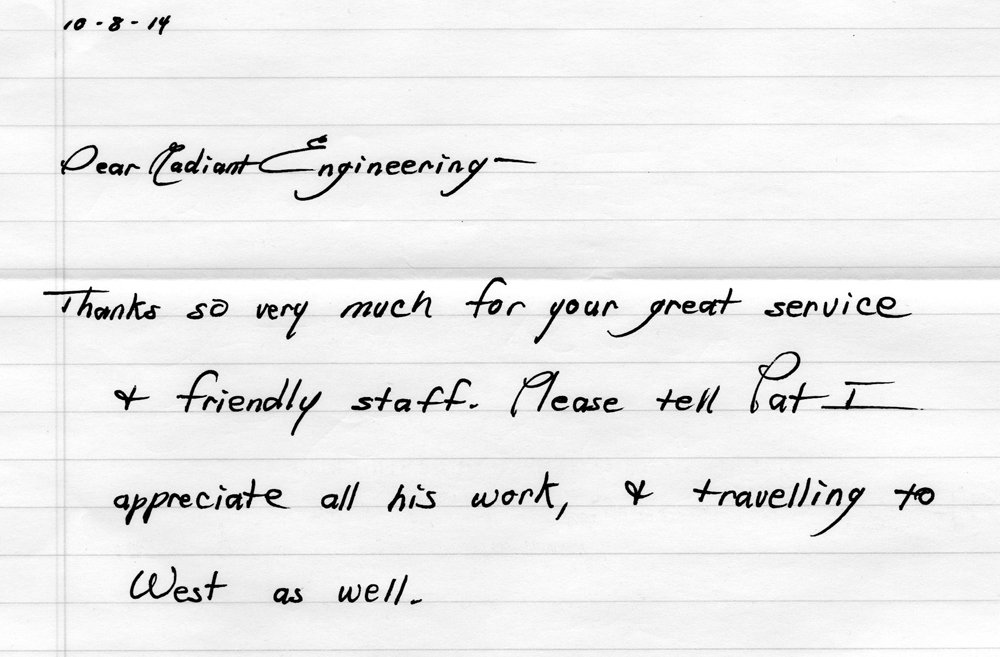 10-8-14
Dear Radiant Engineering-
Thanks so very much for your great service
& friendly staff. Please tell Pat I
appreciate all his work, & travelling to
West as well.